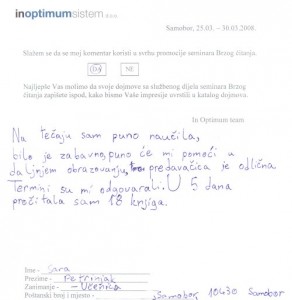 inoptimumsistem d.o.o.
Samobor, 25.03. – 30.03.2008.
Slažem se da se moj komentar koristi u svrhu promocije seminara Brzog čitanja.
DA NE
Najljepše Vas molimo da svoje dojmove sa službenog dijela seminara Brzog
čitanja zapišete ispod, kako bismo Vaše impresije uvrstili u katalog dojmova.
In Optimum team
Na tečaju sam puno naučila,
bilo je zabavno, puno će mi pomoći u
daljnjem obrazovanju, predavačica je odlična
Termini su mi odgovarali. U 5 dana
pročitala sam 18 knjiga.
Ime - Sara
Prezime - Petrinjak
Zanimanje - Učenica
Poštanski broj i mjesto - Samobor, 10430 Samobor